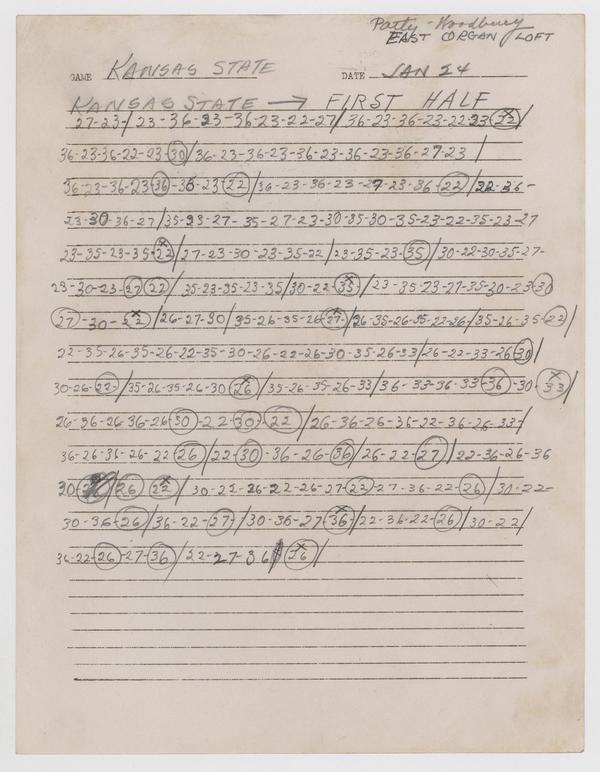 Patty - Woodbury
EAST ORGAN LOFT
GAME KANSAS STATE DATE JAN 24
KANSAS STATE → FIRST HALF
27-23-/23-36-23-36-23-22-27/36-23-36-23-22-23-32/
36-23-36-22-23-30/36-23-36-23-36-23-36-23-36-27-23/
36-23-36-23-36-36-23-22/36-23-36-23-27-23-36-22/22-36-
23-30-36-27/35-23-27-35-27-23-30-35-30-35-23-22-35-23-27
23-35-23-35-22/27-23-30-23-35-22/23-35-23-35/30-22-30-35-27-
23-30-23-27-22/35-23-35-23-35/30-22-35/23-35-23-27-35-30-23-30
27-30-22/26-27-30/35-26-35-26-27-/26-35-26-35-22-26-/35-26-35-22/
22-35-26-35-26-22-35-30-26-22-26-30-35-26-33/26-22-33-26-30/
30-26-22-/35-26-35-26-30-26/35-26-35-26-33/36-33-36-33-36-30-33/
26-36-26-36-26-30-22-30-22/26-36-26-36-22-36-26-33-/
36-26-36-26-22-26/22-30-36-26-36/26-22-27/22-36-26-36
30 /26 22/30-22-26-22-26-27-22-27-36-22-26/30-22-
30-36-26/36-22-27-/30-36-27-36-/22-36-22-26/30-22/
36-22-26-27-36/22-27-36/36/